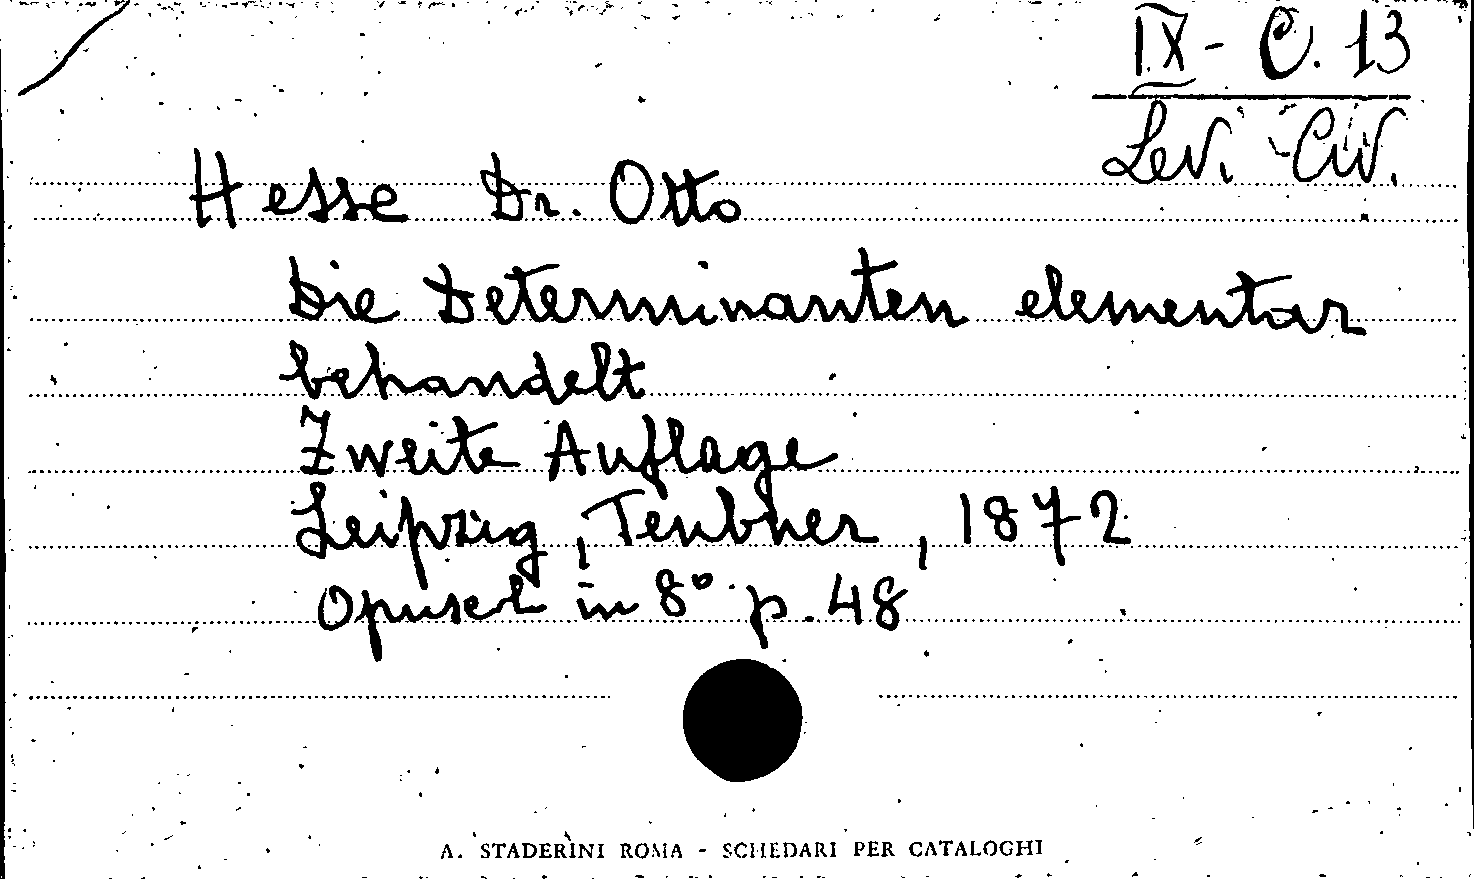 IX - C. 13
Levi - Civ.
Hesse Dr. Otto
Die Determinanten elementar
behandelt
Zweite Auflage
Leipzig, Teubner, 1872
Opusch in 8° p. 48
A. STADERINI ROMA - SCHEDARI PER CATALOGHI